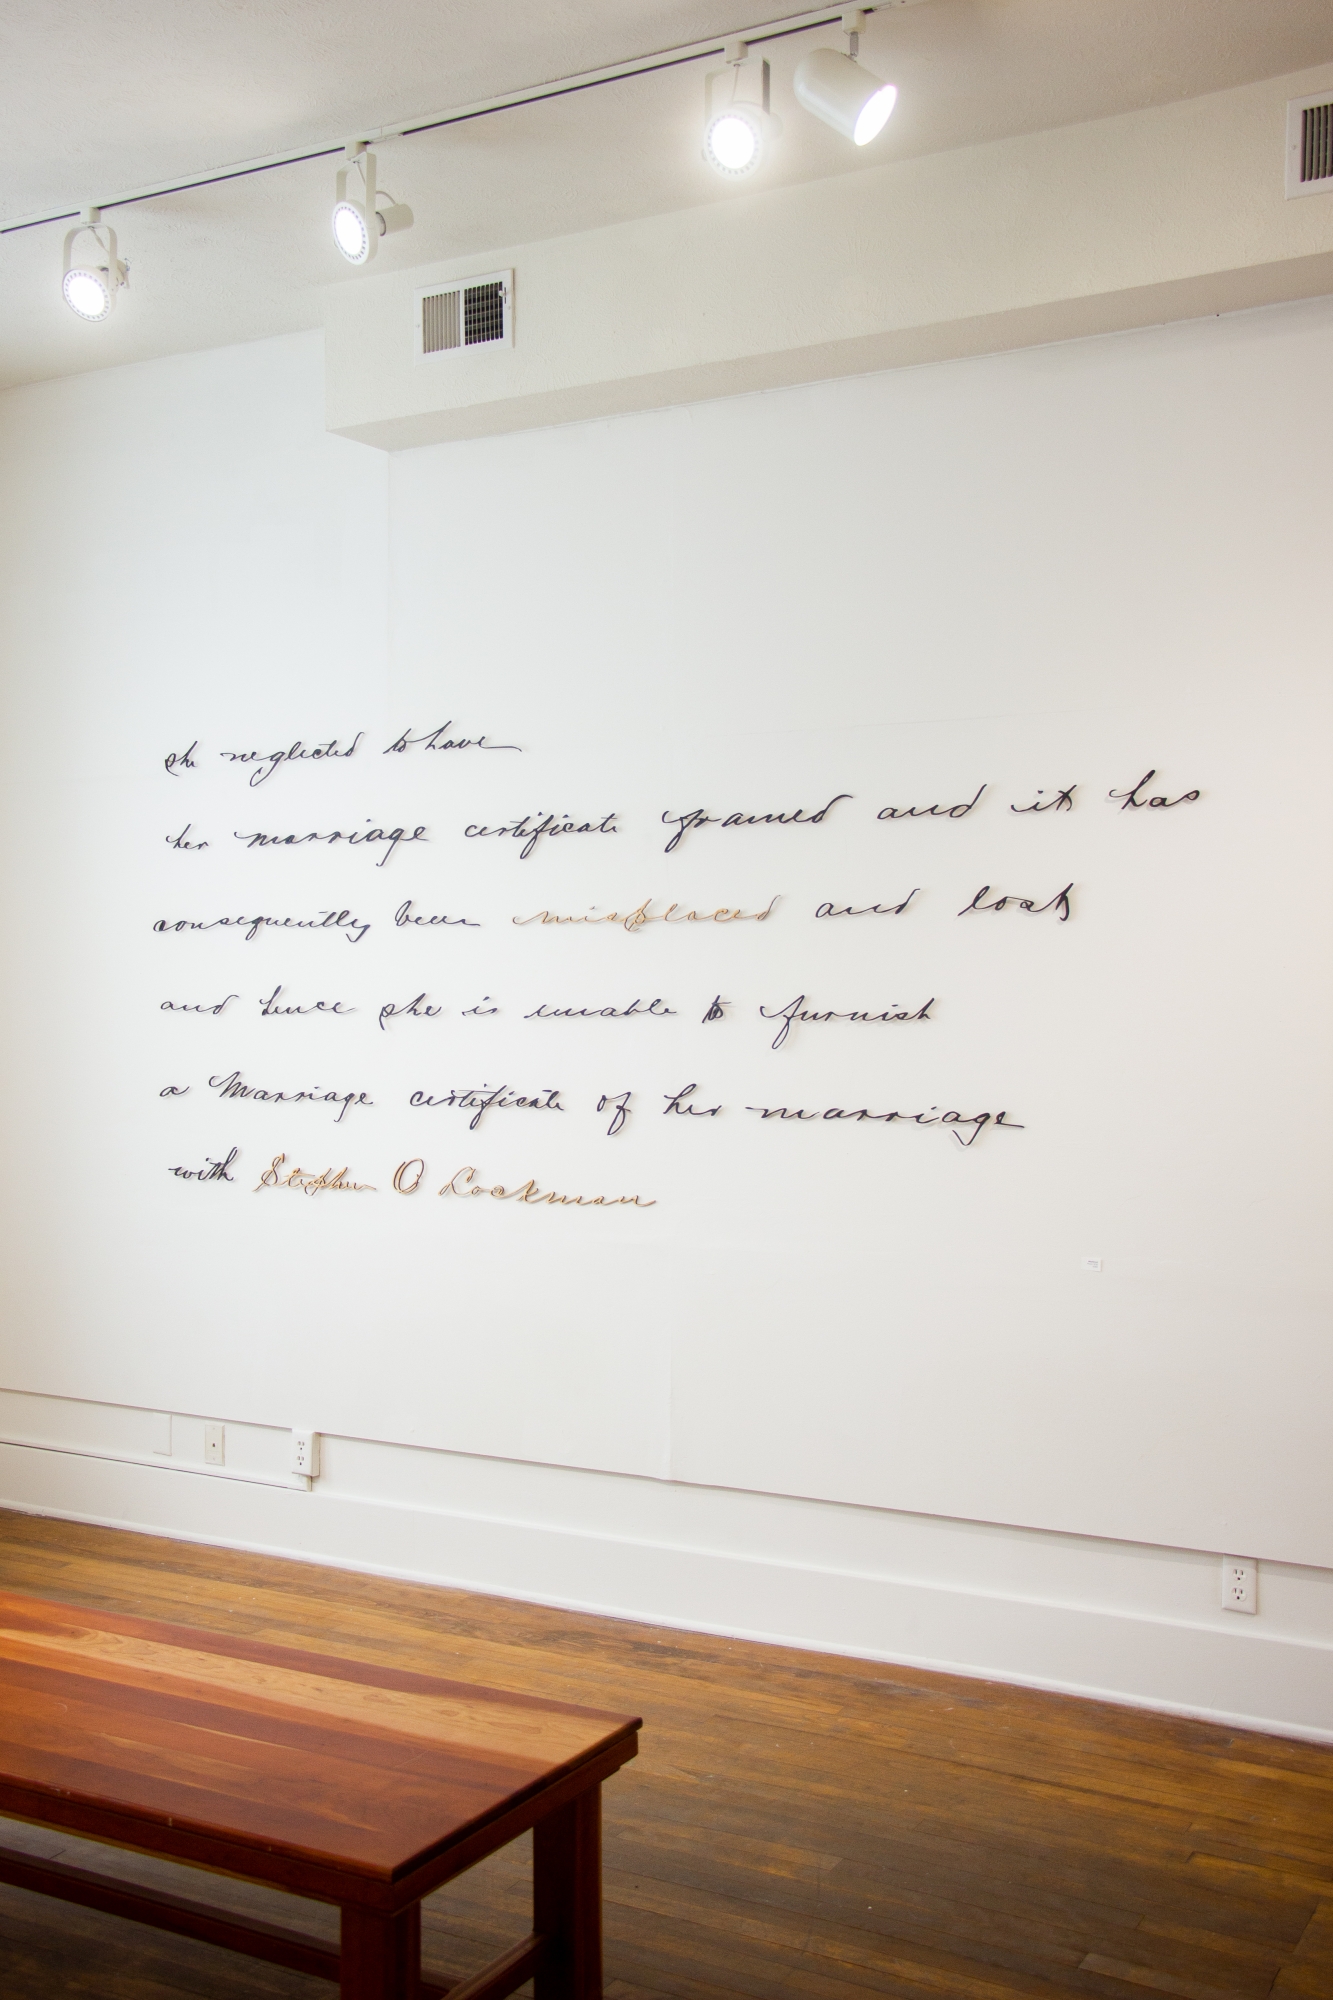 she neglected to have
her marriage certificate framed and it has
consequently been misplaced and lost
and hence she is unable to furnish
a Marriage certificate of her marriage
with Stephen O Lockman